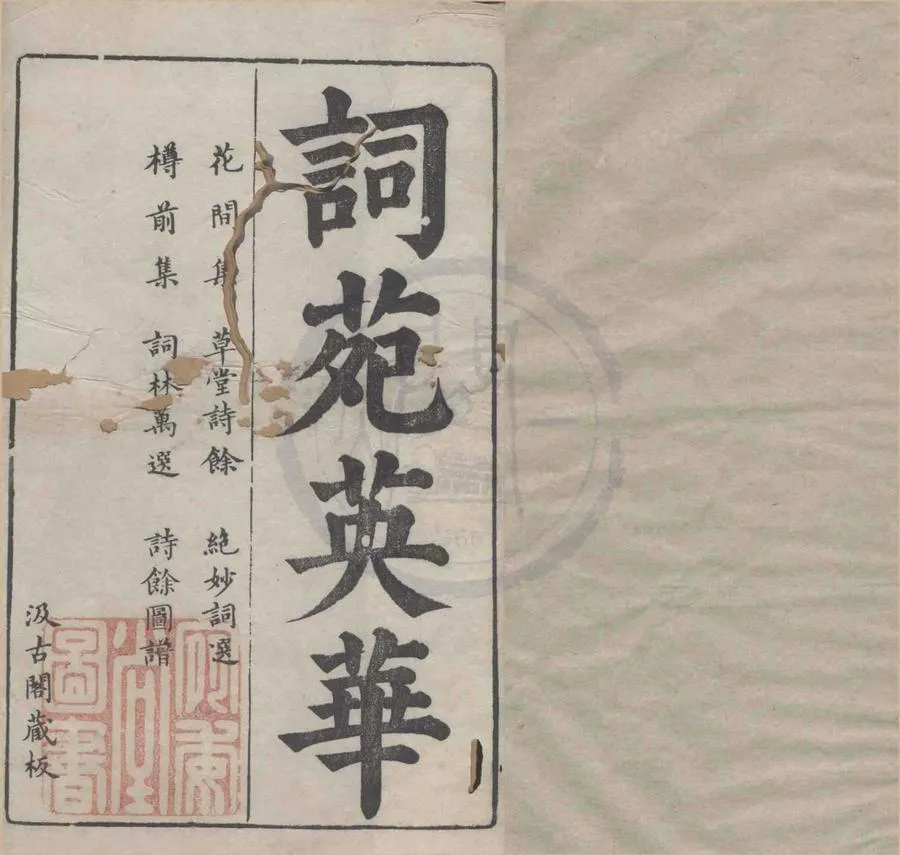 詞苑英華
花間集 草堂詩餘 絕妙詞選
樽前集 詞林萬選 詩餘圖譜
汲古閣藏板